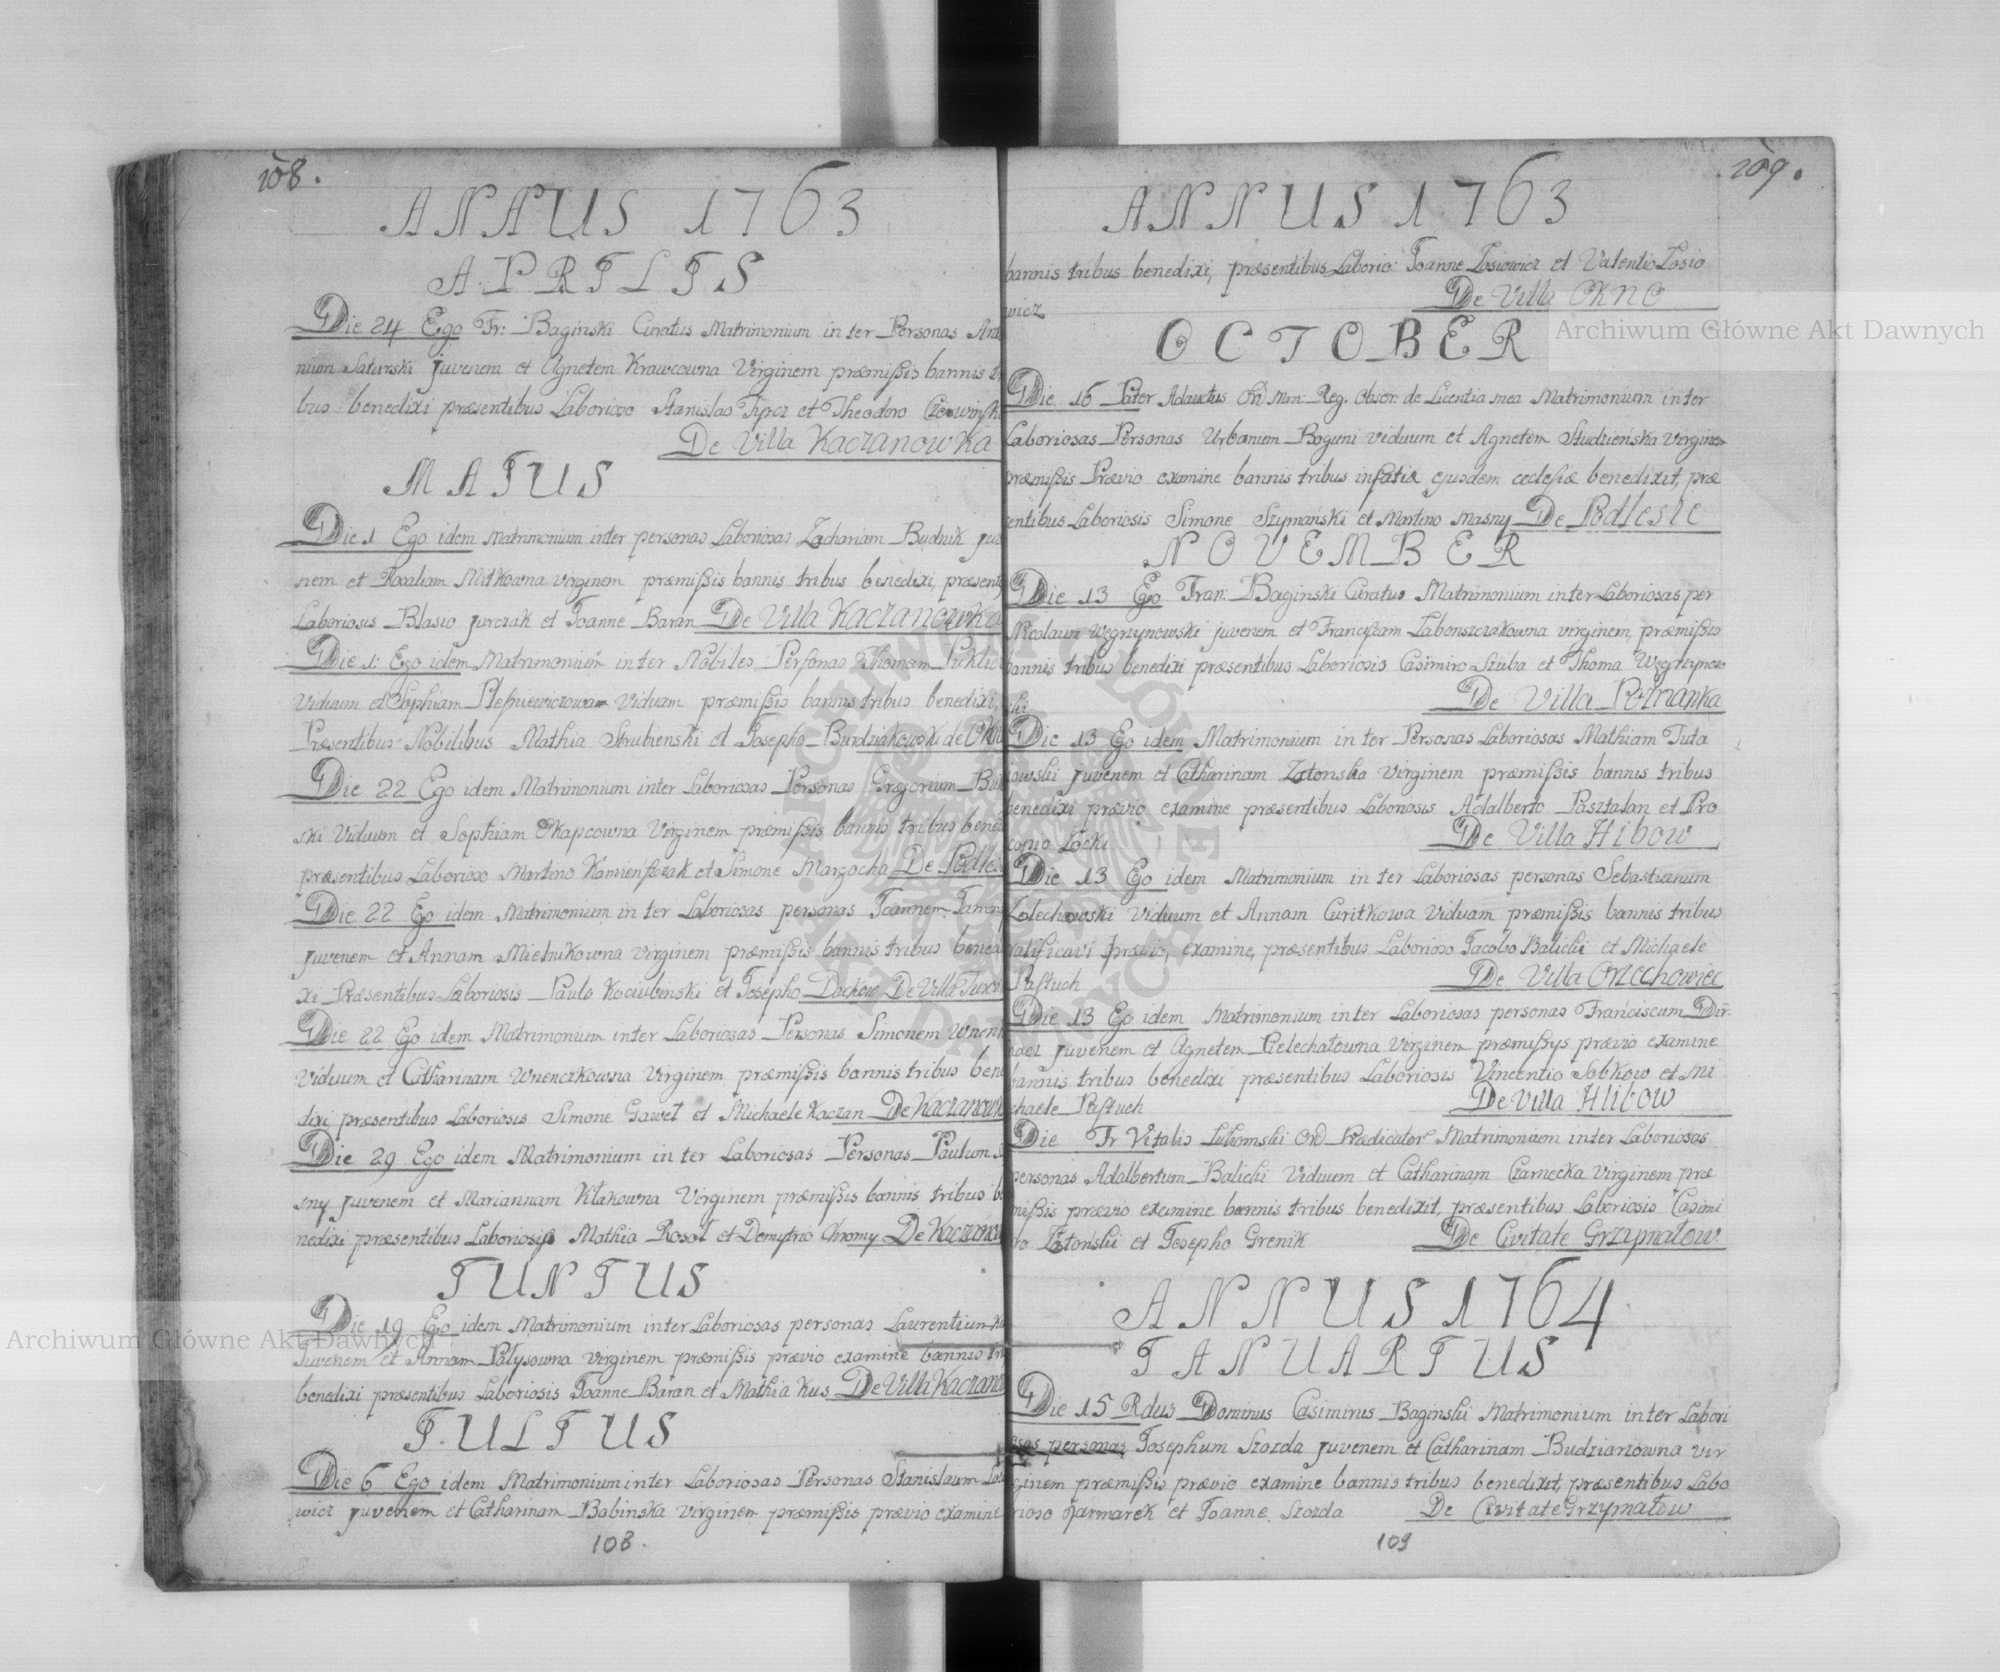 108.
ANNUS 1763
APRILIS
Die 24 Ego Fr: Baginski Curatus Matrimonium inter Personas An
nium Saturski juvenem et Agnetem Krawcowna Virginem præmissis bannis
bus benedixi præsentibus Laborioso Stanislao Tipcz et Theodoro
De Villa Kaczanowka
MAIUS
Die 1 Ego idem Matrimonium inter personas Laboriosas Zachariam Budnik juv
nem et Rosaliam Mitkowna virginem præmissis bannis tribus benedixi, præsent
Laboriosis Blasio Jurczak et Joanne Baran De Villa Kaczanowka
Die 1: Ego idem Matrimonium inter Nobiles Personas Thomam
Viduum et Sophiam Viduam præmissis bannis tribus benedixi,
Præsentibus Nobilibus Mathia Strubienski et Josepho Burdziakowski de
Die 22 Ego idem Matrimonium inter Laboriosas Personas Gregorium
ski Viduum et Sophiam Okapcowna Virginem præmissis bannis tribus bene
præsentibus Laborioso Martino Kamienszczak et Simone Marzocha De Podles
Die 22 Ego idem Matrimonium inter Laboriosas personas Joannem
juvenem et Annam Mielnikowna virginem præmissis bannis tribus bene
xi Præsentibus Laboriosis Paulo Kociubinski et Josepho De Villa
Die 22 Ego idem Matrimonium inter Laboriosas Personas Simonem
Viduum et Catharinam Wnenczkowna Virginem præmissis bannis tribus bene
dixi præsentibus Laboriosis Simone Gaweł et Michaele Kaczan De Kaczanowk
Die 29 Ego idem Matrimonium inter Laboriosas Personas Paulum
sny juvenem et Mariannam Kłakowna Virginem præmissis bannis tribus be
nedixi præsentibus Laboriosis Mathia Rosoł et Demytrio Chromy De Kaczanow
IUNIUS
Die 19 Ego idem Matrimonium inter Laboriosas personas Laurentium
Juvenem et Annam Połysowna virginem præmissis prævio examine bannis tri
benedixi præsentibus Laboriosis Joanne Baran et Mathia Kus De Villa Kaczano
IULIUS
Die 6 Ego idem Matrimonium inter Laboriosas Personas Stanislaum
wicz juvenem et Catharinam Babinska virginem præmissis prævio examine
108.
109.
ANNUS 1763
bannis tribus benedixi, præsentibus Laborio: Joanne Łosiowicz et Valentio Łosio
wicz
De Villa OKNO
OCTOBER
Die 16 Pater Adauctus Ord Min: Reg. Obser: de Licentia mea Matrimonium inter
Laboriosas Personas Urbanum Boguni viduum et Agnetem Studzieńska Virginem
præmissis Prævio examine bannis tribus ejusdem ecclesiæ benedixit, præ
entibus Laboriosis Simone Szymański et Martino Masny De Podlesie
NOVEMBER
Die 13 Ego Fran: Baginski Curatus Matrimonium inter Laboriosas per
Nicolaum Węgrzynowski juvenem et virginem, præmissis
bannis tribus benedixi præsentibus Laboriosis Casimiro Szuba et Thoma Węgrzynow
ski
De Villa Poznanka
Die 13 Ego idem Matrimonium inter Personas Laboriosas Mathiam Tuta
iowski juvenem et Catharinam Zatonska virginem præmissis bannis tribus
benedixi prævio examine præsentibus Laboriosis Adalberto Pasztalan et Pro
copio Łocki
De Villa Hibow
Die 13 Ego idem Matrimonium inter Laboriosas personas Sebastianum
Viduum et Annam Curitkowa Viduam præmissis bannis tribus
ratificavi prævio, examine, præsentibus Laborioso Jacobo Balicki et Michaele
Pastuch
De Villa Orzechowiec
Die 13 Ego idem Matrimonium inter Laboriosas personas Franciscum
juvenem et Agnetem Pielechatowna Virginem præmissys prævio examine
bannis tribus benedixi præsentibus Laboriosis Vincentio Sobkow et Mi
chaele Pastuch
De Villa Hlibow
Die Fr Vitalis Ord Prædicator Matrimonium inter Laboriosas
personas Adalbertum Balicki Viduum et Catharinam Czarnecka virginem præ
missis prævio examine bannis tribus benedixit, præsentibus Laboriosis Casimi
ro Zatoński et Josepho Grenik
De Civitate Grzymałow
ANNUS 1764
IANUARIUS
Die 15 Rdus Dominus Casimirus Baginski Matrimonium inter Labori
osas personas Josephum Szozda juvenem et Catharinam Budziarzowna vir
ginem præmissis prævio examine bannis tribus benedixit, præsentibus Labo
rioso Jarmarek et Joanne Szozda
De Civitate Grzymałow
109
Archiwum Główne Akt Dawnych
Archiwum Główne Akt Dawnych
ARCHIWUM GŁÓWNE AKT DAWNYCH